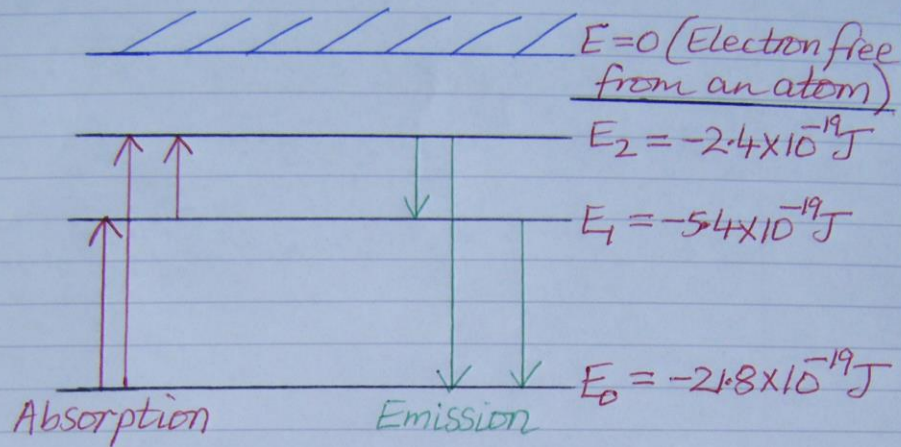 E=0 (Electron free
from an atom)
E₂ = -2.4×10⁻¹⁹J
E₁ = -5.4×10⁻¹⁹J
E₀ = -21.8×10⁻¹⁹J
Absorption Emission